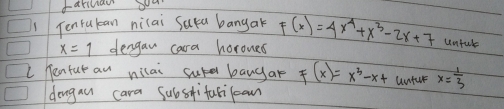 Latihan Soal
1 Tentukan nilai suku bangak F(x) = 4x⁴ + x³ - 2x + 7 untuk
x = 1 dengan cara horoner
2 Tentuk an nilai suku bangak F(x) = x³ - x + untuk x = 1/3
dengan cara substitusikan